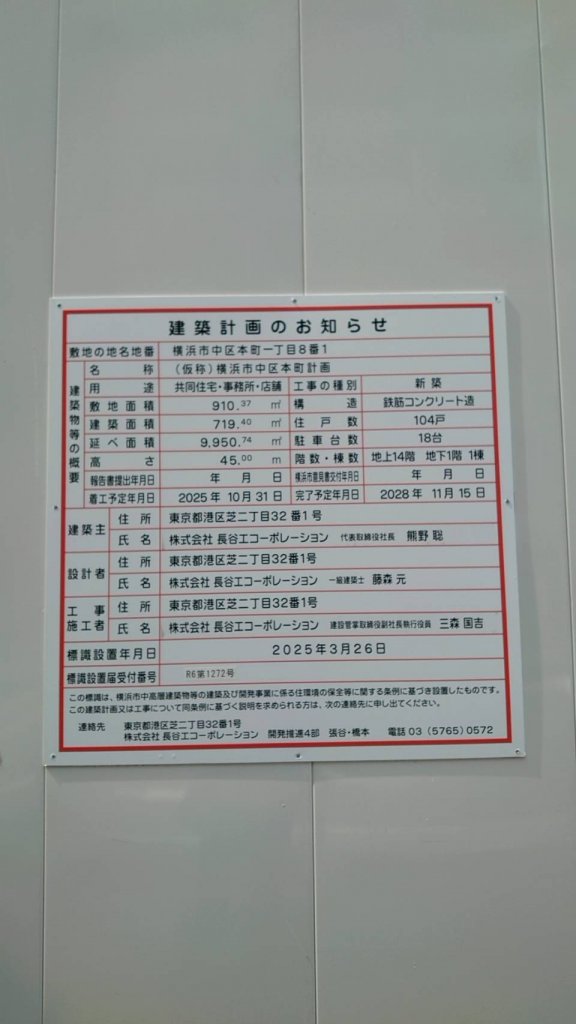 建築計画のお知らせ
敷地の地名地番 横浜市中区本町一丁目8番1
建築物等の概要
名称 (仮称)横浜市中区本町計画
用途 共同住宅・事務所・店舗 工事の種別 新築
敷地面積 910.37 ㎡ 構造 鉄筋コンクリート造
建築面積 719.40 ㎡ 住戸数 104戸
延べ面積 9,950.74 ㎡ 駐車台数 18台
高さ 45.00 m 階数・棟数 地上14階 地下1階 1棟
報告書提出年月日 年 月 日 横浜市意見書交付年月日 年 月 日
着工予定年月日 2025年 10月 31日 完了予定年月日 2028年 11月 15日
建築主 住所 東京都港区芝二丁目32番1号
氏名 株式会社 長谷工コーポレーション 代表取締役社長 熊野 聡
設計者 住所 東京都港区芝二丁目32番1号
氏名 株式会社 長谷工コーポレーション 一級建築士 藤森 元
工事施工者 住所 東京都港区芝二丁目32番1号
氏名 株式会社 長谷工コーポレーション 建設管掌取締役副社長執行役員 三森 国吉
標識設置年月日 2025年3月26日
標識設置届受付番号 R6第1272号
この標識は、横浜市中高層建築物等の建築及び開発事業に係る住環境の保全等に関する条例に基づき設置したものです。
この建築計画又は工事について同条例に基づく説明を求められる方は、次の連絡先に申し出てください。
連絡先 東京都港区芝二丁目32番1号
株式会社 長谷工コーポレーション 開発推進4部 張谷・橋本 電話 03(5765)0572